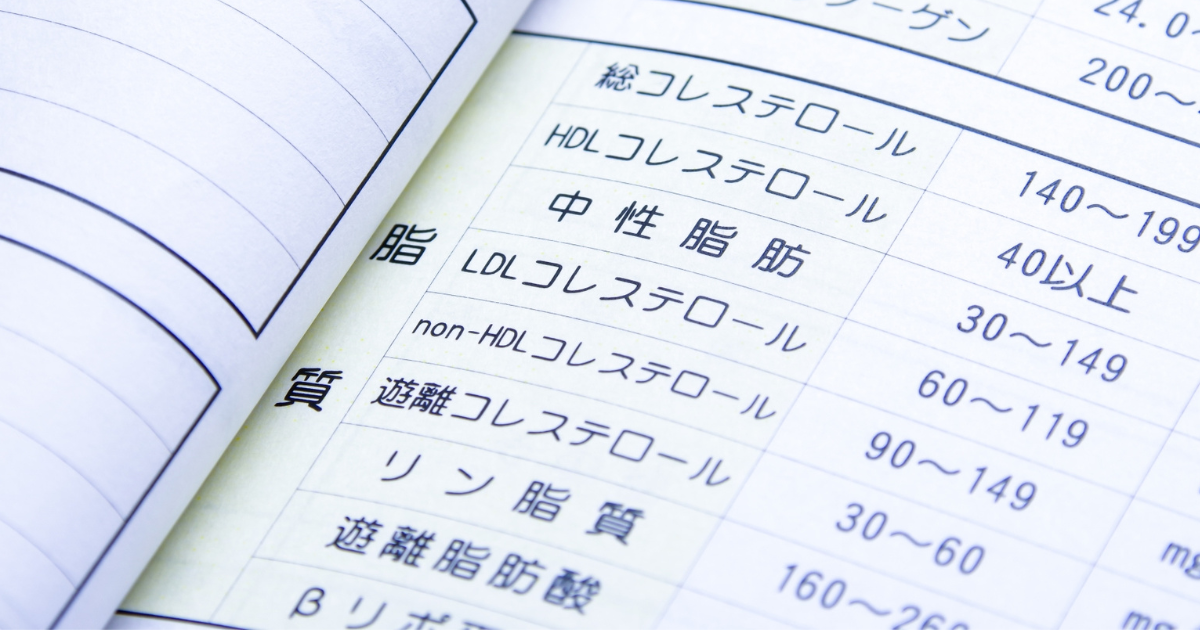 24.0～
ーゲン 200～
脂質
総コレステロール 140～199
HDLコレステロール 40以上
中性脂肪 30～149
LDLコレステロール 60～119
non-HDLコレステロール 90～149
遊離コレステロール 30～60
リン脂質 160～26
遊離脂肪酸
βリポ
mg
mg